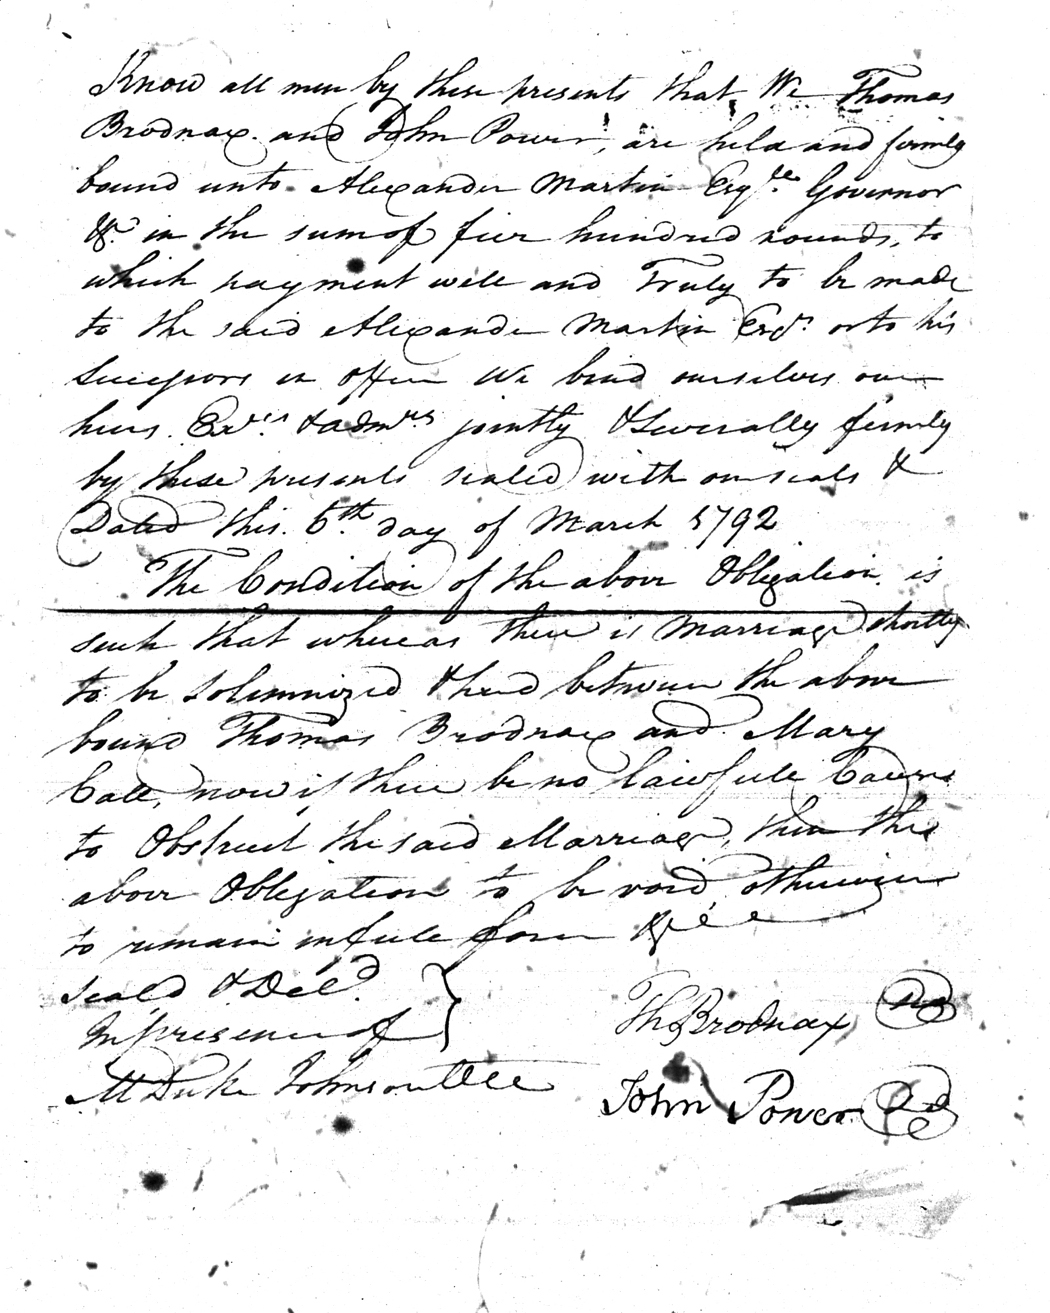 Know all men by these presents that We Thomas
Brodnax and John Power, are held and firmly
bound unto Alexander Martin Esqr. Governor
&c in the sum of five hundred pounds, to
which payment well and Truly to be made
to the said Alexander Martin Esqr. or to his
Successors in office We bind ourselves our
heirs Exrs. & admrs jointly & Severally firmly
by these presents sealed with our seals &
Dated this 6th day of March 1792
The Condition of the above Obligation is
such that whereas there is Marriage shortly
to be Solemnized & had between the above
bound Thomas Brodnax and Mary
Call, now if there be no lawfull Cause
to Obstruct the said Marriage, then the
above Obligation to be void otherwise
to remain in full force &c
Seald & Deld.
In presence of
Th Brodnax
John Power
M Duke Johnson